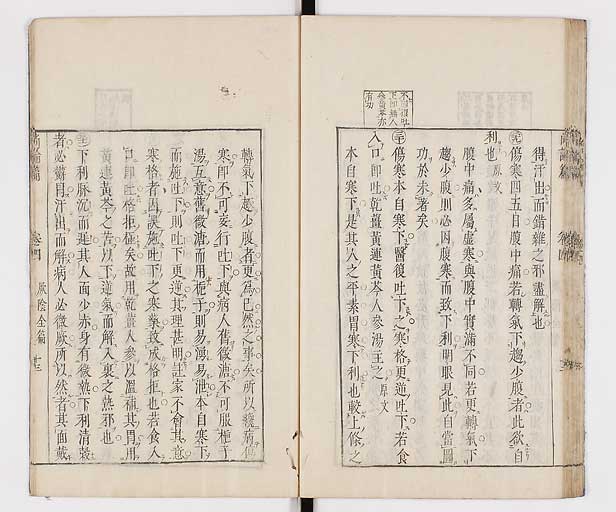 不因誤吐
下即無人
參黃芩亦
有功
得汗出而錯雜之邪盡解也
傷寒四五日腹中痛若轉氣下趨少腹者此欲自
利也 原文
腹中痛多屬虛寒與腹中實滿不同若更轉氣下
趨少腹則必因腹寒而致下利明眼見此自當圖
功於未著矣
傷寒本自寒下醫復吐下之寒格更逆吐下若食
入口即吐乾薑黃連黃芩人參湯主之 原文
本自寒下是其人之平素胃寒下利也較上條之
轉氣下趨少腹者更為已然之事矣所以纔病傷
寒即不可妄行吐下與病人舊微溏不可服梔子
湯互意舊微溏而用梔子則易湧易泄本自寒下
而施吐下則吐下更逆其理甚明註家不會其意
寒格者因誤施吐下之寒藥致成格拒也若食入
口即吐格拒極矣故用乾薑人參以溫補其胃用
黃連黃芩之苦以下逆氣而解入裏之熱邪也
下利脈沉而遲其人面少赤身有微熱下利清穀
者必鬱冒汗出而解病人必微厥所以然者其面戴
尚論篇 卷四 厥陰全篇 十三